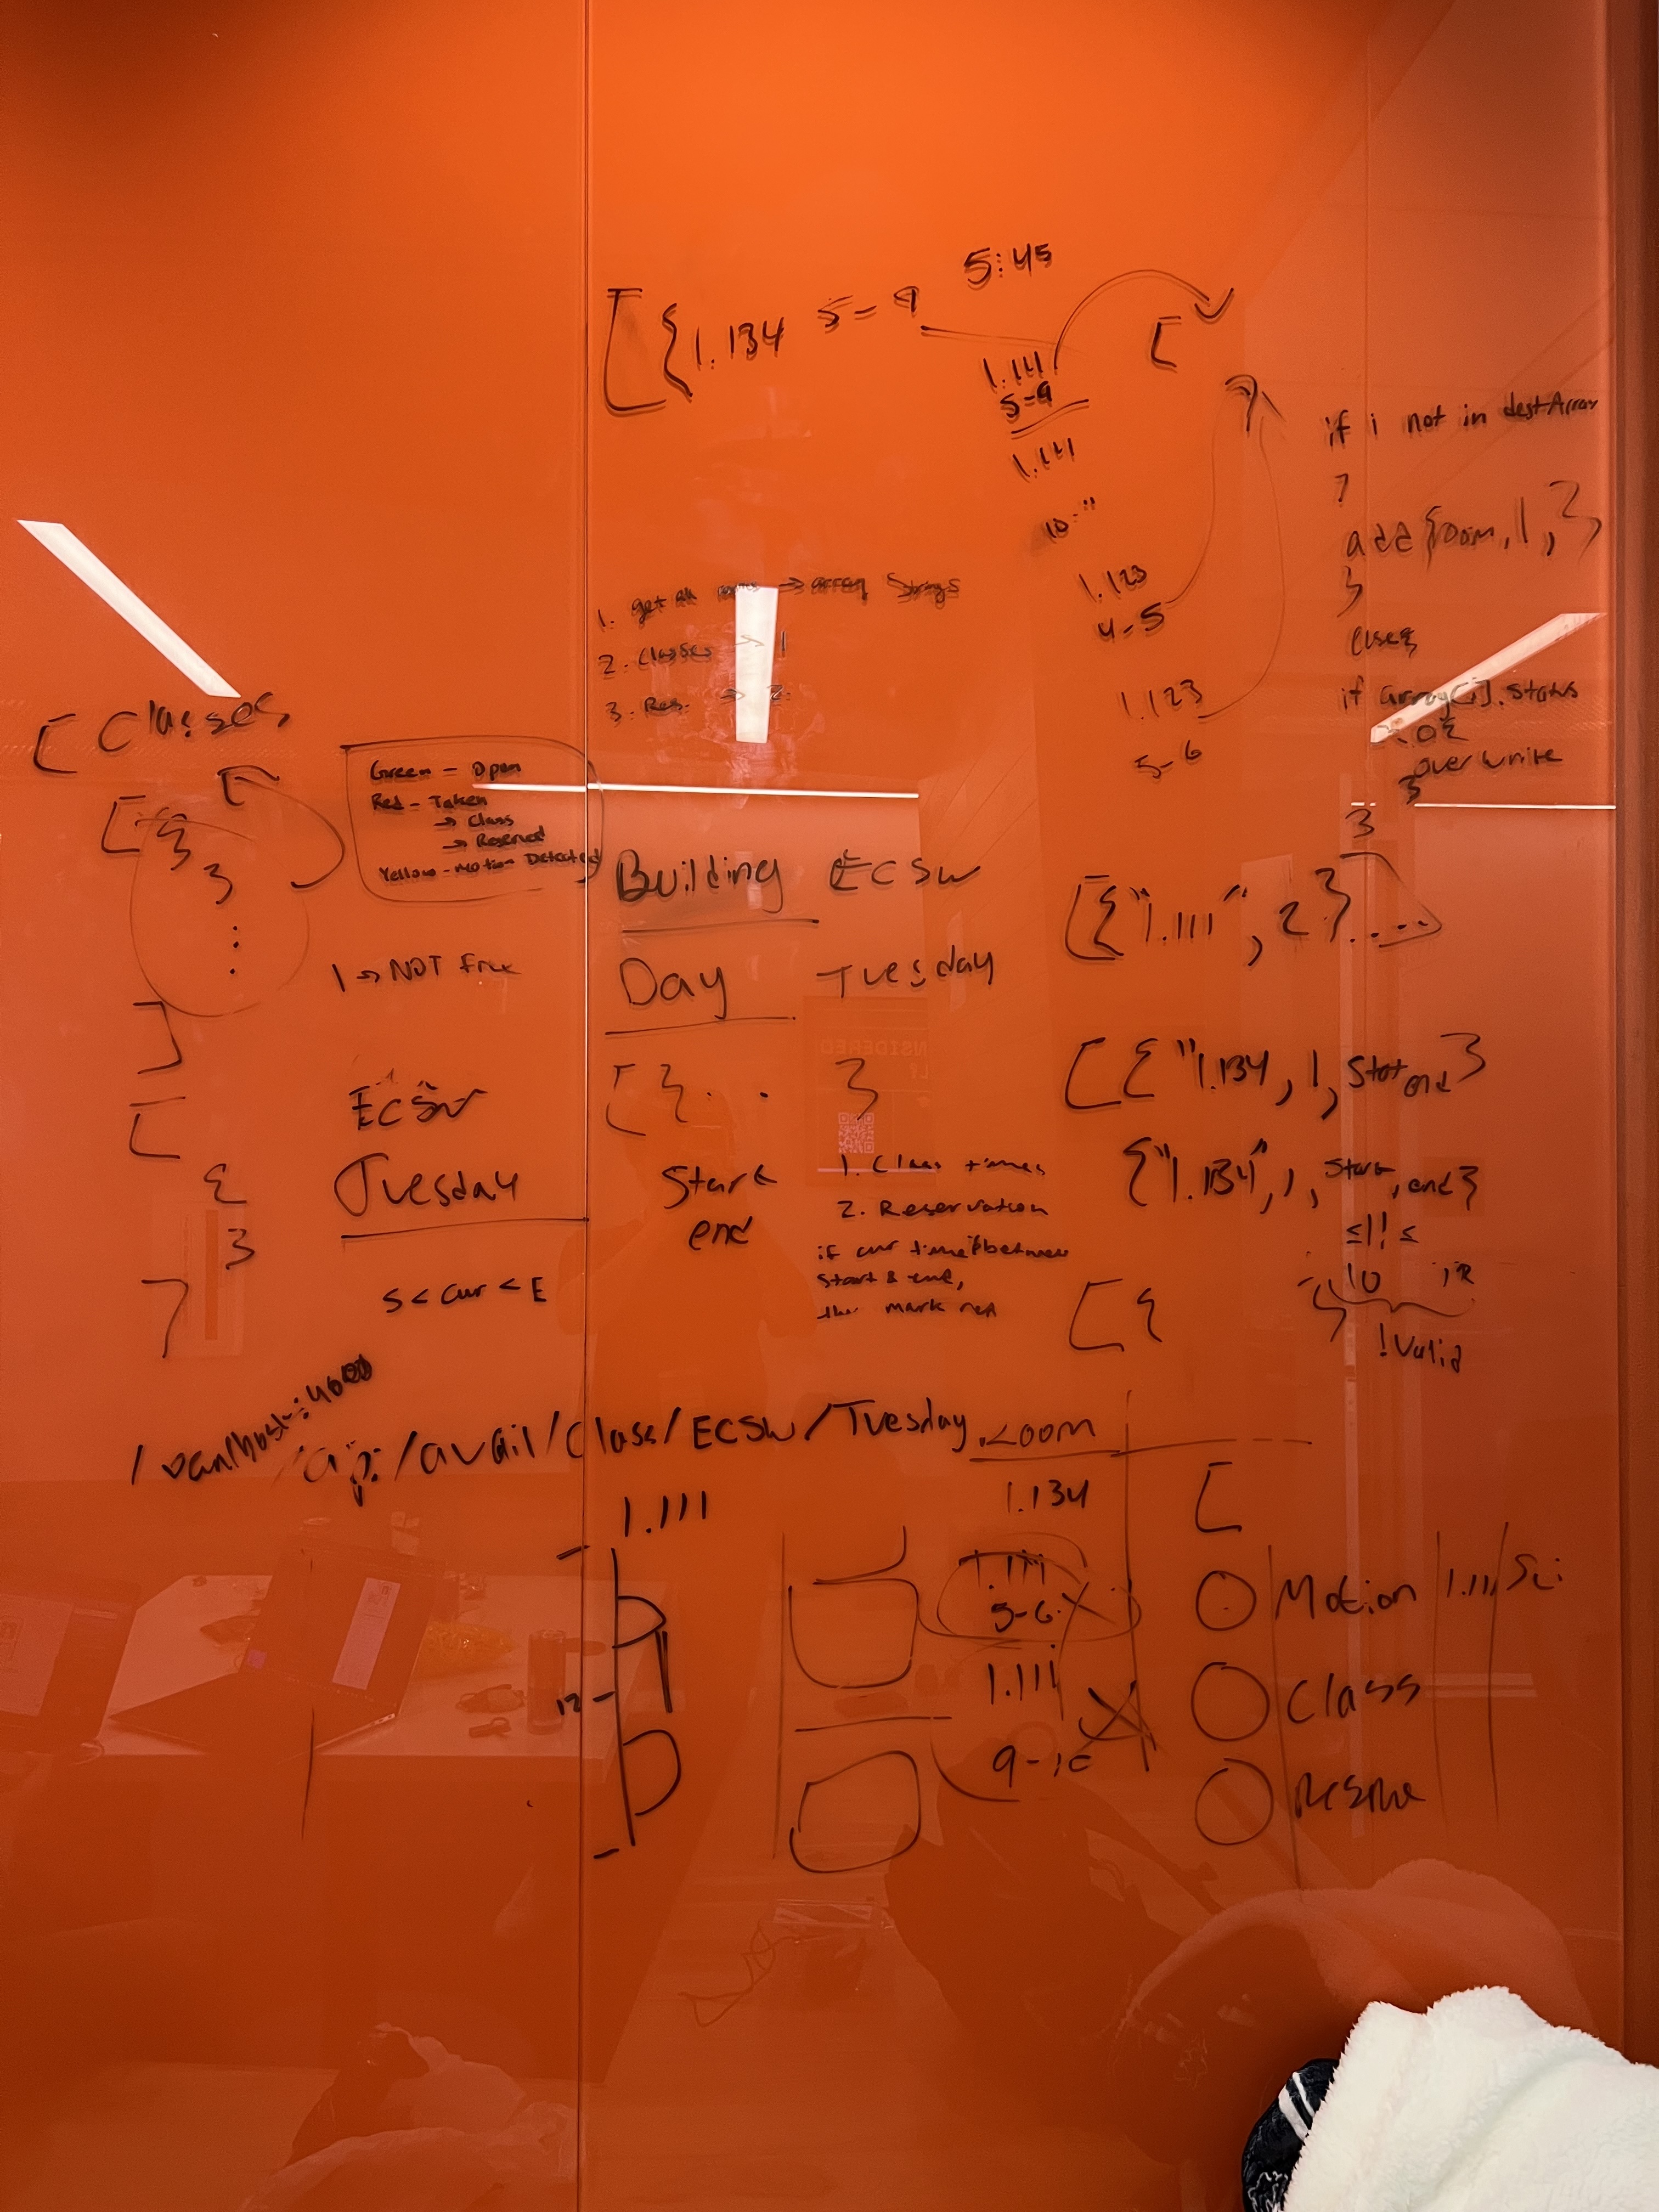 5:45
[ { 1.134 5-9
1.111
5-9
1.111
10-11
[
if i not in destArray
add {room, 1, }
}
else{
if array[i].status
overwrite
}
1.123
4-5
1.123
5-6
1. get all rooms → array Strings
2. Classes → 1
3. Res. → 2
[ Classes
Green - Open
Red - Taken
→ Class
→ Reserved
Yellow - Motion Detected
1 → NOT free
Building ECSW
Day Tuesday
[{"1.111", 2}....
[{"1.134, 1, Start end}
{"1.134", 1, start, end}
≤ || ≤
10 12
!Valid
ECSW
Tuesday
S < cur < E
Start
end
1. Class times
2. Reservation
if cur time between
start & end,
then mark red
/localhost:4000/api/avail/class/ECSW/Tuesday
room
1.111
12
1.134
1.111
5-6
1.111
9-10
[
Motion 1.111
Class
Reserve